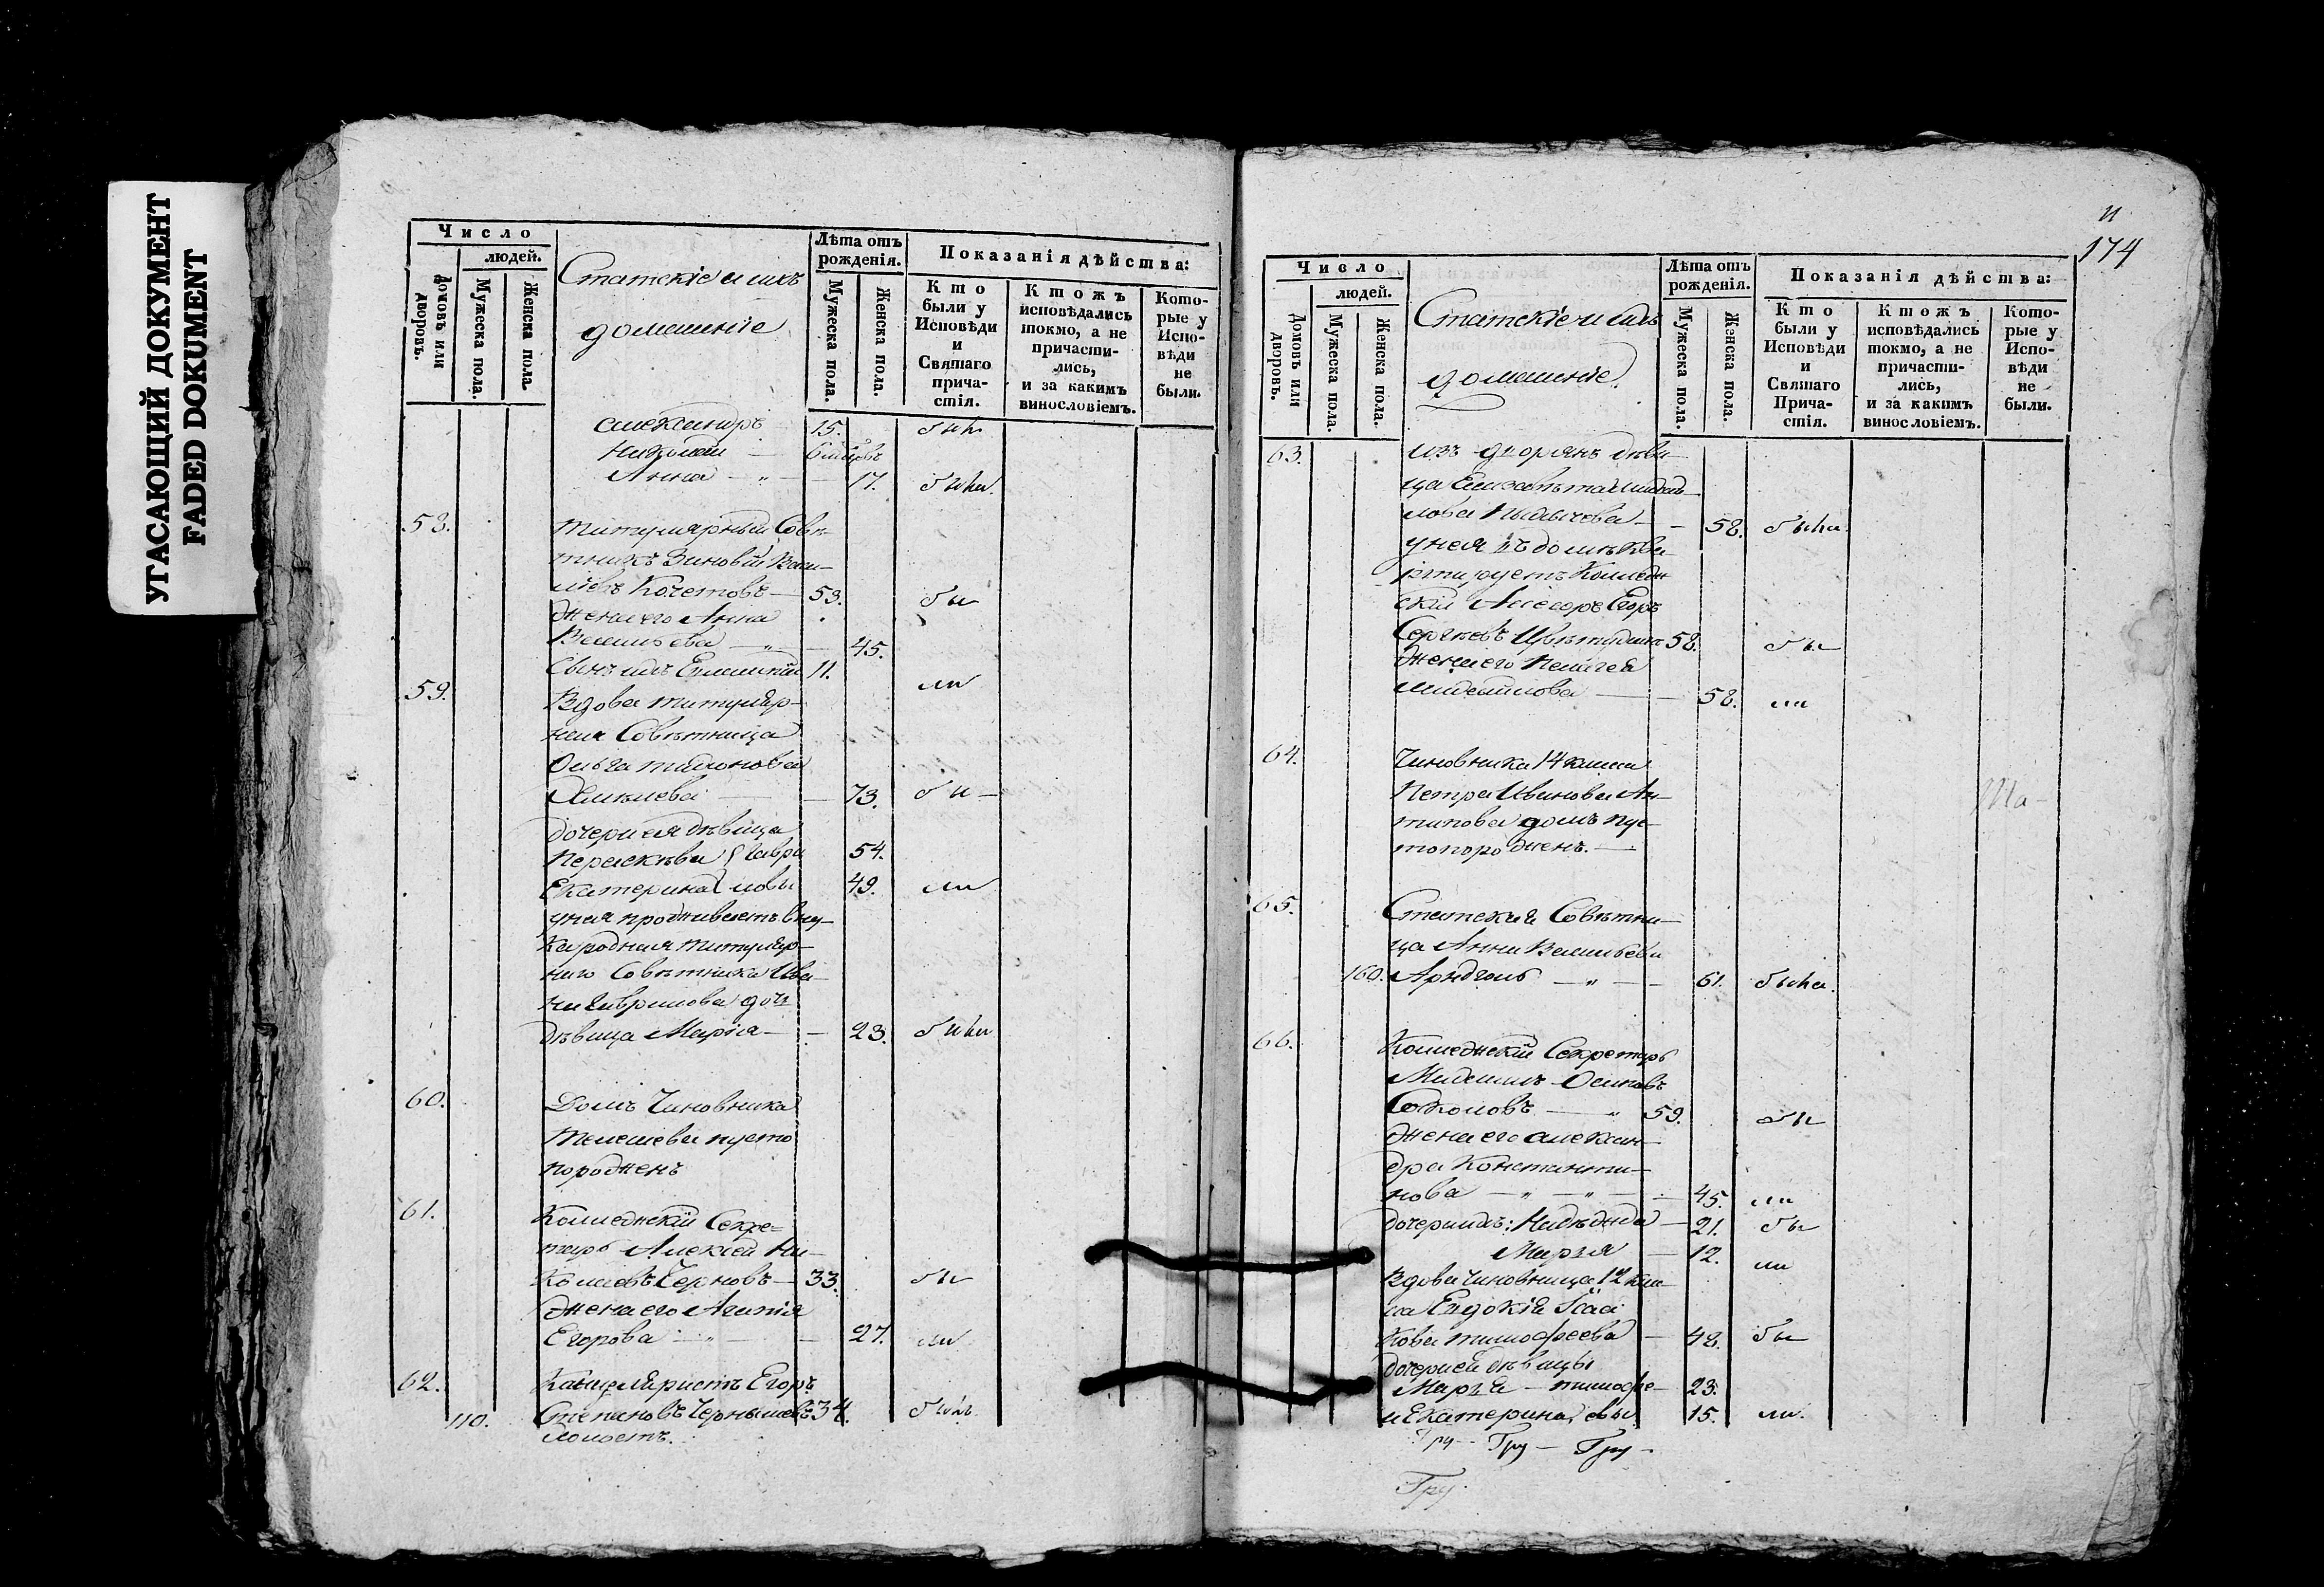 УТАСАЮЩИЙ ДОКУМЕНТ
FADED DOKUMENT
Число
людей.
Домовъ или дворовъ.
Мужеска пола.
Женска пола.
Статскіе и ихъ
домашніе
Лѣта отъ рожденія.
Мужеска пола.
Женска пола.
Показанія дѣйства:
Кто были у Исповѣди и Святаго прича-стія.
Ктожъ исповѣдались токмо, а не причасти-лись, и за какимъ винословіемъ.
Кото-рые у Испо-вѣди не были.
Александръ 15.
Николай
Анна 17. была.
58. Титулярный Совѣ-
тникъ Зиновій Васи-
льевъ Кочетовъ 53. бы
жена его Анна
Васильева 45.
Сынъ ихъ 11. ли
59. Вдова титуляр-
ная Совѣтница
Ольга
73. бы
дочери ея дѣвица
Параскѣва Гаври 54.
Екатерина ловы 49. ли
у нея проживаетъ вну-
ка родная титуляр-
наго Совѣтника Ива-
на Гаврилова дочь
дѣвица Марія 23. была
60. Домъ Чиновника
Телешева пусто
порожденъ
61. Коллежскій Секре=
тарь Алексѣй Ни-
Колаевъ Черновъ 33. бы
жена его Агапія
Егорова 27. ли
62. Канцеляристъ Егоръ
110. Степановъ Чернышевъ 34. былъ
холостъ.
и
174
Число
людей.
Домовъ или дворовъ.
Мужеска пола.
Женска пола.
Статскіе и ихъ
домашніе.
Лѣта отъ рожденія.
Мужеска пола.
Женска пола.
Показанія дѣйства:
Кто были у Исповѣди и Святаго Прича-стія.
Ктожъ исповѣдались токмо, а не причасти-лись, и за какимъ винословіемъ.
Кото-рые у Испо-вѣди не были.
63. изъ дворянъ дѣви-
ца Елизавета Михай-
лова 58. была.
у нея въ домѣ ква-
ртируетъ Коллеж-
скій Асесоръ Егоръ
Сергѣевъ 58. бы
жена его Пелагея
Михайлова 58. ли
64. Чиновника 14 класа
Петра Иванова Ан-
типова домъ пус-
топорожденъ.
65. Статская Совѣтни-
ца Анна Васильева
160. 61. была.
66. Коллежскій Секретарь
Михаилъ Осиповъ
Соколовъ 59. бы
жена его Алексан-
дра Константи-
нова 45. ли
дочери ихъ: Надежда 21. бы
Марія 12. ли
Вдова чиновница 12 кла-
са Евдокія Исаа
Кова Тимофеева 48. бы
дочери ей дѣвицы
Марія Тимофе- 23.
и Екатерина евы 15. ли.
Гру- Гру- Гру-
Гру